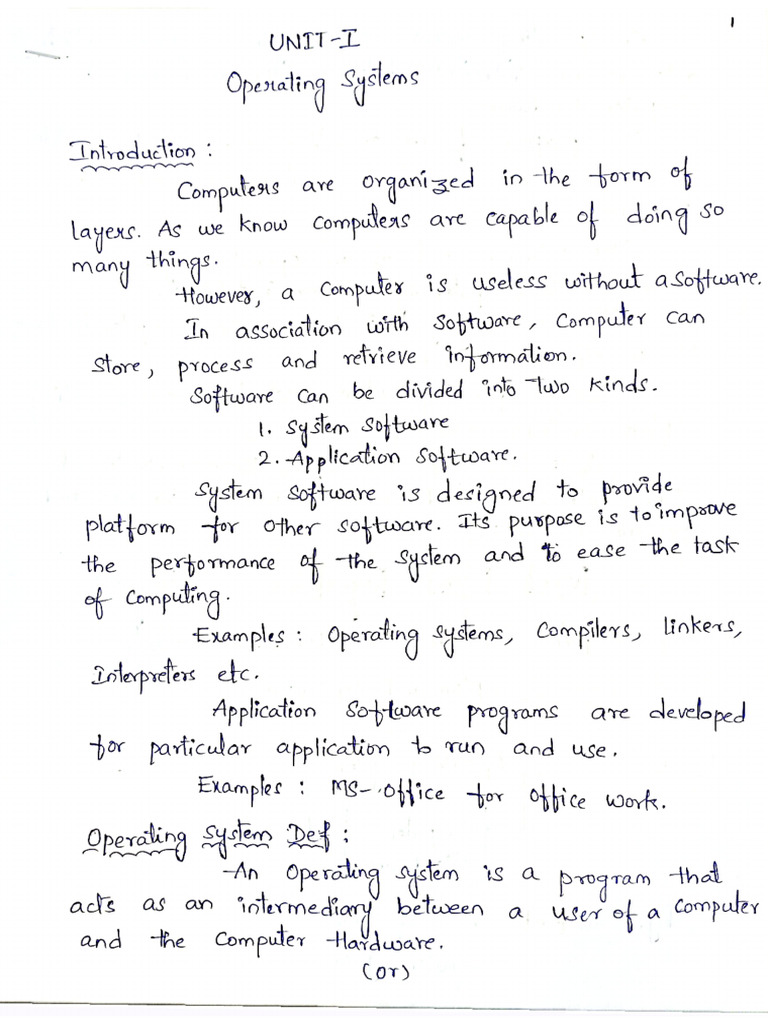 1
UNIT-I
Operating Systems
Introduction :
Computers are organized in the form of
layers. As we know computers are capable of doing so
many things.
However, a computer is useless without a software.
In association with software, computer can
store, process and retrieve information.
Software can be divided into two kinds.
1. System software
2. Application software.
System software is designed to provide
platform for other software. Its purpose is to improve
the performance of the system and to ease the task
of computing.
Examples : Operating systems, compilers, linkers,
Interpreters etc.
Application software programs are developed
for particular application to run and use.
Examples : MS-office for office work.
Operating System Def :
An operating system is a program that
acts as an intermediary between a user of a computer
and the computer Hardware.
(or)